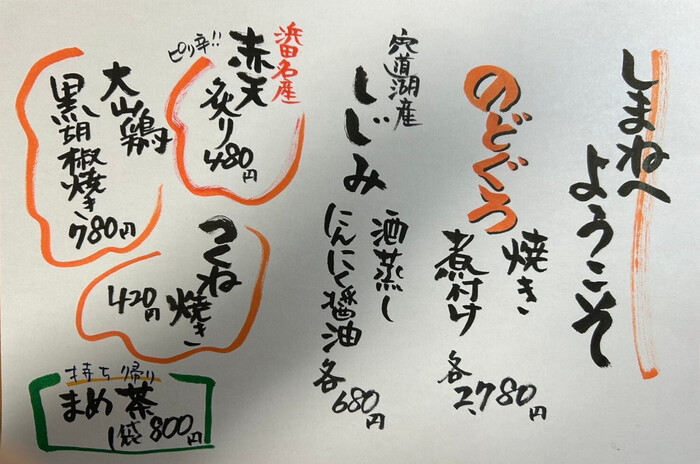 しまねへ
ようこそ
のどぐろ
焼き
煮付け
各2,780円
穴道湖産
しじみ
酒蒸し
にんにく醤油
各680円
浜田名産
赤天
ピリ辛!!
炙り
480円
大山鶏
黒胡椒焼き
780円
つくね
焼き
420円
持ち帰り
まめ茶
1袋800円